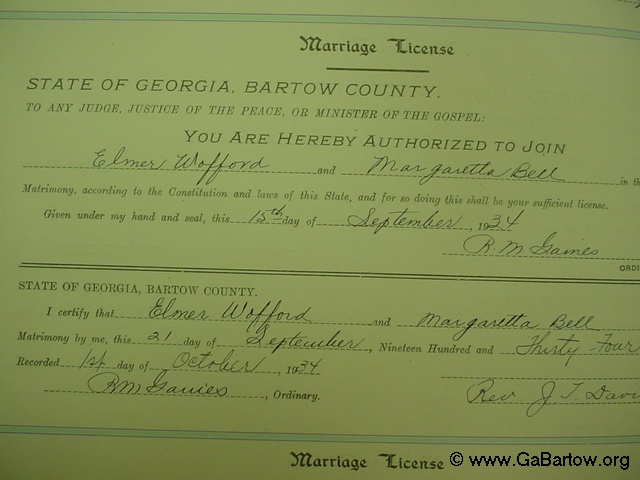 Marriage License
STATE OF GEORGIA, BARTOW COUNTY.
TO ANY JUDGE, JUSTICE OF THE PEACE, OR MINISTER OF THE GOSPEL:
YOU ARE HEREBY AUTHORIZED TO JOIN
Elmer Wofford and Margaretta Bell in th
Matrimony, according to the Constitution and laws of this State, and for so doing this shall be your sufficient license.
Given under my hand and seal, this 15th day of September, 1934
R M Gaines
ORDI
STATE OF GEORGIA, BARTOW COUNTY.
I certify that Elmer Wofford and Margaretta Bell
Matrimony by me, this 21 day of September, Nineteen Hundred and Thirty Four
Recorded 1st day of October, 1934
RM Gaines, Ordinary.
Rev J. T. Davi
Marriage License © www.GaBartow.org